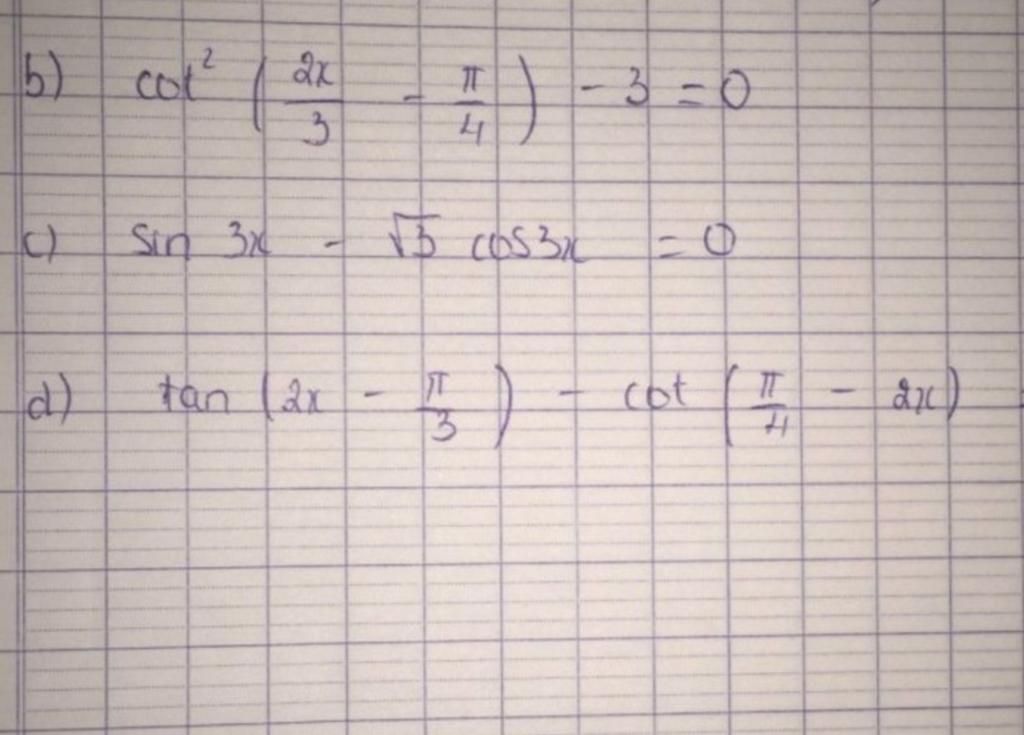 b) cot² (2x/3 - π/4) - 3 = 0
c) sin 3x - √3 cos3x = 0
d) tan (2x - π/3) - cot (π/4 - 2x)